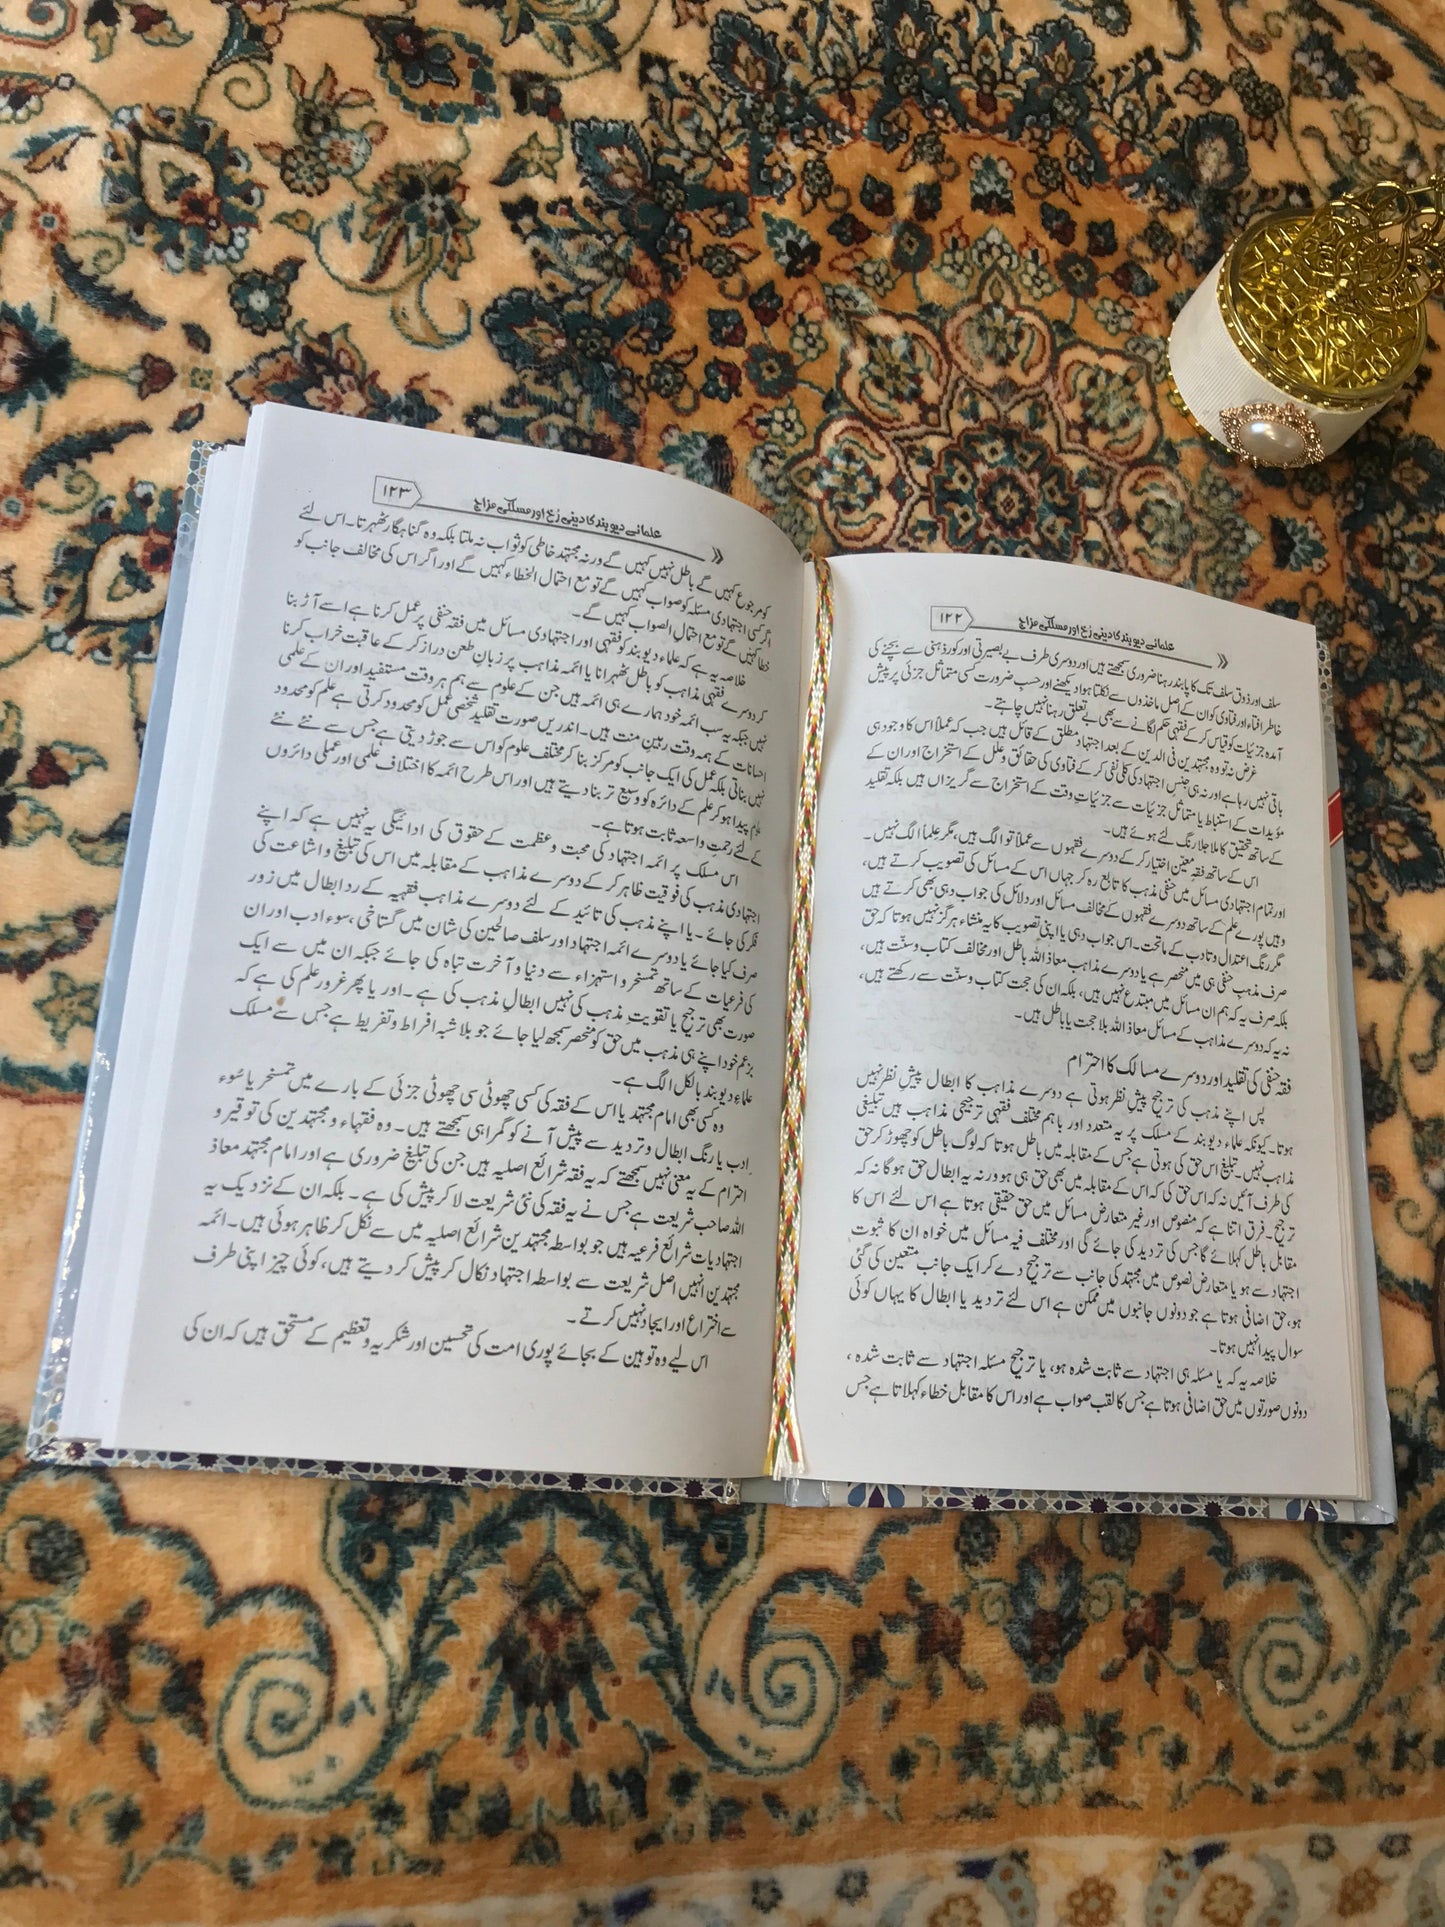 ۱۲۲
علمائے دیوبند کا دینی رُخ اور مسلکی مزاج
سلف اور ذوقِ سلف تک کا پابند رہنا ضروری سمجھتے ہیں اور دوسری طرف بے بصیرتی اور کورذہنی سے بچنے کی
خاطر افتاء اور فتاویٰ کو ان کے اصل ماخذوں سے نکلتا ہوا دیکھنے اور حسبِ ضرورت کسی متماثل جزئی پر پیش
آمدہ جزئیات کو قیاس کرکے فقہی حکم لگانے سے بھی بے تعلق رہنا نہیں چاہتے۔
غرض نہ تو وہ مجتہدین فی الدین کے بعد اجتہادِ مطلق کے قائل ہیں جب کہ عملاً اس کا وجود ہی
باقی نہیں رہا ہے اور نہ ہی جنسِ اجتہاد کی کلی نفی کرکے فتاویٰ کی حقائق و علل کے استخراج اور ان کے
مؤیدات کے استنباط یا متماثل جزئیات سے جزئیاتِ وقت کے استخراج سے گریزاں ہیں بلکہ تقلید
کے ساتھ تحقیق کا ملا جلا رنگ لئے ہوئے ہیں۔
اس کے ساتھ فقہ معیّن اختیار کرکے دوسرے فقہوں سے عملاً تو الگ ہیں، مگر علماً الگ نہیں۔
اور تمام اجتہادی مسائل میں حنفی مذہب کا تابع رہ کر جہاں اس کے مسائل کی تصویب کرتے ہیں،
وہیں پورے علم کے ساتھ دوسرے فقہوں کے مخالف مسائل اور دلائل کی جواب دہی بھی کرتے ہیں
مگر رنگِ اعتدال و تادب کے ماتحت۔ اس جواب دہی یا اپنی تصویب کا یہ منشاء ہرگز نہیں ہوتا کہ حق
صرف مذہبِ حنفی ہی میں منحصر ہے یا دوسرے مذاہب معاذ اللہ باطل اور مخالف کتاب و سنّت ہیں،
بلکہ صرف یہ کہ ہم ان مسائل میں مبتدع نہیں ہیں، بلکہ ان کی حجت کتاب و سنّت سے رکھتے ہیں،
نہ یہ کہ دوسرے مذاہب کے مسائل معاذ اللہ بلا حجت یا باطل ہیں۔
فقہ حنفی کی تقلید اور دوسرے مسالک کا احترام
پس اپنے مذہب کی ترجیح پیشِ نظر ہوتی ہے دوسرے مذاہب کا ابطال پیشِ نظر نہیں
ہوتا۔ کیونکہ علماء دیوبند کے مسلک پر یہ متعدد اور باہم مختلف فقہی ترجیحی مذاہب ہیں تبلیغی
مذاہب نہیں۔ تبلیغ اس حق کی ہوتی ہے جس کے مقابلہ میں باطل ہوتا کہ لوگ باطل کو چھوڑ کر حق
کی طرف آئیں نہ کہ اس حق کی کہ اس کے مقابلہ میں بھی حق ہی ہو ورنہ یہ ابطالِ حق ہوگا نہ کہ
ترجیح۔ فرق اتنا ہے کہ منصوص اور غیر متعارض مسائل میں حق حقیقی ہوتا ہے اس لئے اس کا
مقابل باطل کہلائے گا جس کی تردید کی جائے گی اور مختلف فیہ مسائل میں خواہ ان کا ثبوت
اجتہاد سے ہو یا متعارض نصوص میں مجتہد کی جانب سے ترجیح دے کر ایک جانب متعین کی گئی
ہو، حق اضافی ہوتا ہے جو دونوں جانبوں میں ممکن ہے اس لئے تردید یا ابطال کا یہاں کوئی
سوال پیدا نہیں ہوتا۔
خلاصہ یہ کہ یا مسئلہ ہی اجتہاد سے ثابت شدہ ہو، یا ترجیحِ مسئلہ اجتہاد سے ثابت شدہ،
دونوں صورتوں میں حق اضافی ہوتا ہے جس کا لقب صواب ہے اور اس کا مقابل خطاء کہلاتا ہے جس
۱۲۳
علمائے دیوبند کا دینی رُخ اور مسلکی مزاج
کو مرجوع کہیں گے باطل نہیں کہیں گے ورنہ مجتہد خاطی کو ثواب نہ ملتا بلکہ وہ گناہگار ٹھہرتا۔ اس لئے
اگر کسی اجتہادی مسئلہ کو صواب کہیں گے تو مع احتمال الخطاء کہیں گے اور اگر اس کی مخالف جانب کو
خطا کہیں گے تو مع احتمالِ الصواب کہیں گے۔
خلاصہ یہ ہے کہ علماء دیوبند کو فقہی اور اجتہادی مسائل میں فقہ حنفی پر عمل کرنا ہے اسے آڑ بنا
کر دوسرے فقہی مذاہب کو باطل ٹھہرانا یا ائمہ مذاہب پر زبانِ طعن دراز کرکے عاقبت خراب کرنا
نہیں جبکہ یہ سب ائمہ خود ہمارے ہی ائمہ ہیں جن کے علوم سے ہم ہر وقت مستفید اور ان کے علمی
احسانات کے ہمہ وقت رہینِ منت ہیں۔ اندریں صورت تقلیدِ شخصی عمل کو محدود کرتی ہے علم کو محدود
نہیں بناتی بلکہ عمل کی ایک جانب کو مرکز بنا کر مختلف علوم کو اس سے جوڑ دیتی ہے جس سے نئے نئے
علوم پیدا ہوکر علم کے دائرہ کو وسیع تر بنا دیتے ہیں اور اس طرح ائمہ کا اختلاف علمی اور عملی دائروں
کے لئے رحمتِ واسعہ ثابت ہوتا ہے۔
اس مسلک پر ائمہ اجتہاد کی محبت و عظمت کے حقوق کی ادائیگی یہ نہیں ہے کہ اپنے
اجتہادی مذہب کی فوقیت ظاہر کرکے دوسرے مذاہب کے مقابلہ میں اس کی تبلیغ و اشاعت کی
فکر کی جائے۔ یا اپنے مذہب کی تائید کے لئے دوسرے مذاہبِ فقہیہ کے رد ابطال میں زور
صرف کیا جائے یا دوسرے ائمہ اجتہاد اور سلف صالحین کی شان میں گستاخی، سوء ادب اور ان
کی فرعیات کے ساتھ تمسخر و استہزاء سے دنیا و آخرت تباہ کی جائے جبکہ ان میں سے ایک
صورت بھی ترجیح یا تقویتِ مذہب کی نہیں ابطالِ مذہب کی ہے۔ اور یا پھر غرورِ علم کی ہے کہ
بزعمِ خود اپنے ہی مذہب میں حق کو منحصر سمجھ لیا جائے جو بلا شبہ افراط و تفریط ہے جس سے مسلک
علماءِ دیوبند بالکل الگ ہے۔
وہ کسی بھی امام مجتہد یا اس کے فقہ کی کسی چھوٹی سی چھوٹی جزئی کے بارے میں تمسخر یا سُوءِ
ادب یا رنگِ ابطال و تردید سے پیش آنے کو گمراہی سمجھتے ہیں۔ وہ فقہاء و مجتہدین کی توقیر و
احترام کے یہ معنی نہیں سمجھتے کہ یہ فقہ شرائعِ اصلیہ ہیں جن کی تبلیغ ضروری ہے اور امام مجتہد معاذ
اللہ صاحبِ شریعت ہے جس نے یہ فقہ کی نئی شریعت لا کر پیش کی ہے۔ بلکہ ان کے نزدیک یہ
اجتہادیات شرائع فرعیہ ہیں جو بواسطہ مجتہدین شرائع اصلیہ میں سے نکل کر ظاہر ہوئی ہیں۔ ائمہ
مجتہدین انہیں اصل شریعت سے بواسطہ اجتہاد نکال کر پیش کر دیتے ہیں، کوئی چیز اپنی طرف
سے اختراع اور ایجاد نہیں کرتے۔
اس لیے وہ توہین کے بجائے پوری امت کی تحسین اور شکریہ و تعظیم کے مستحق ہیں کہ ان کی